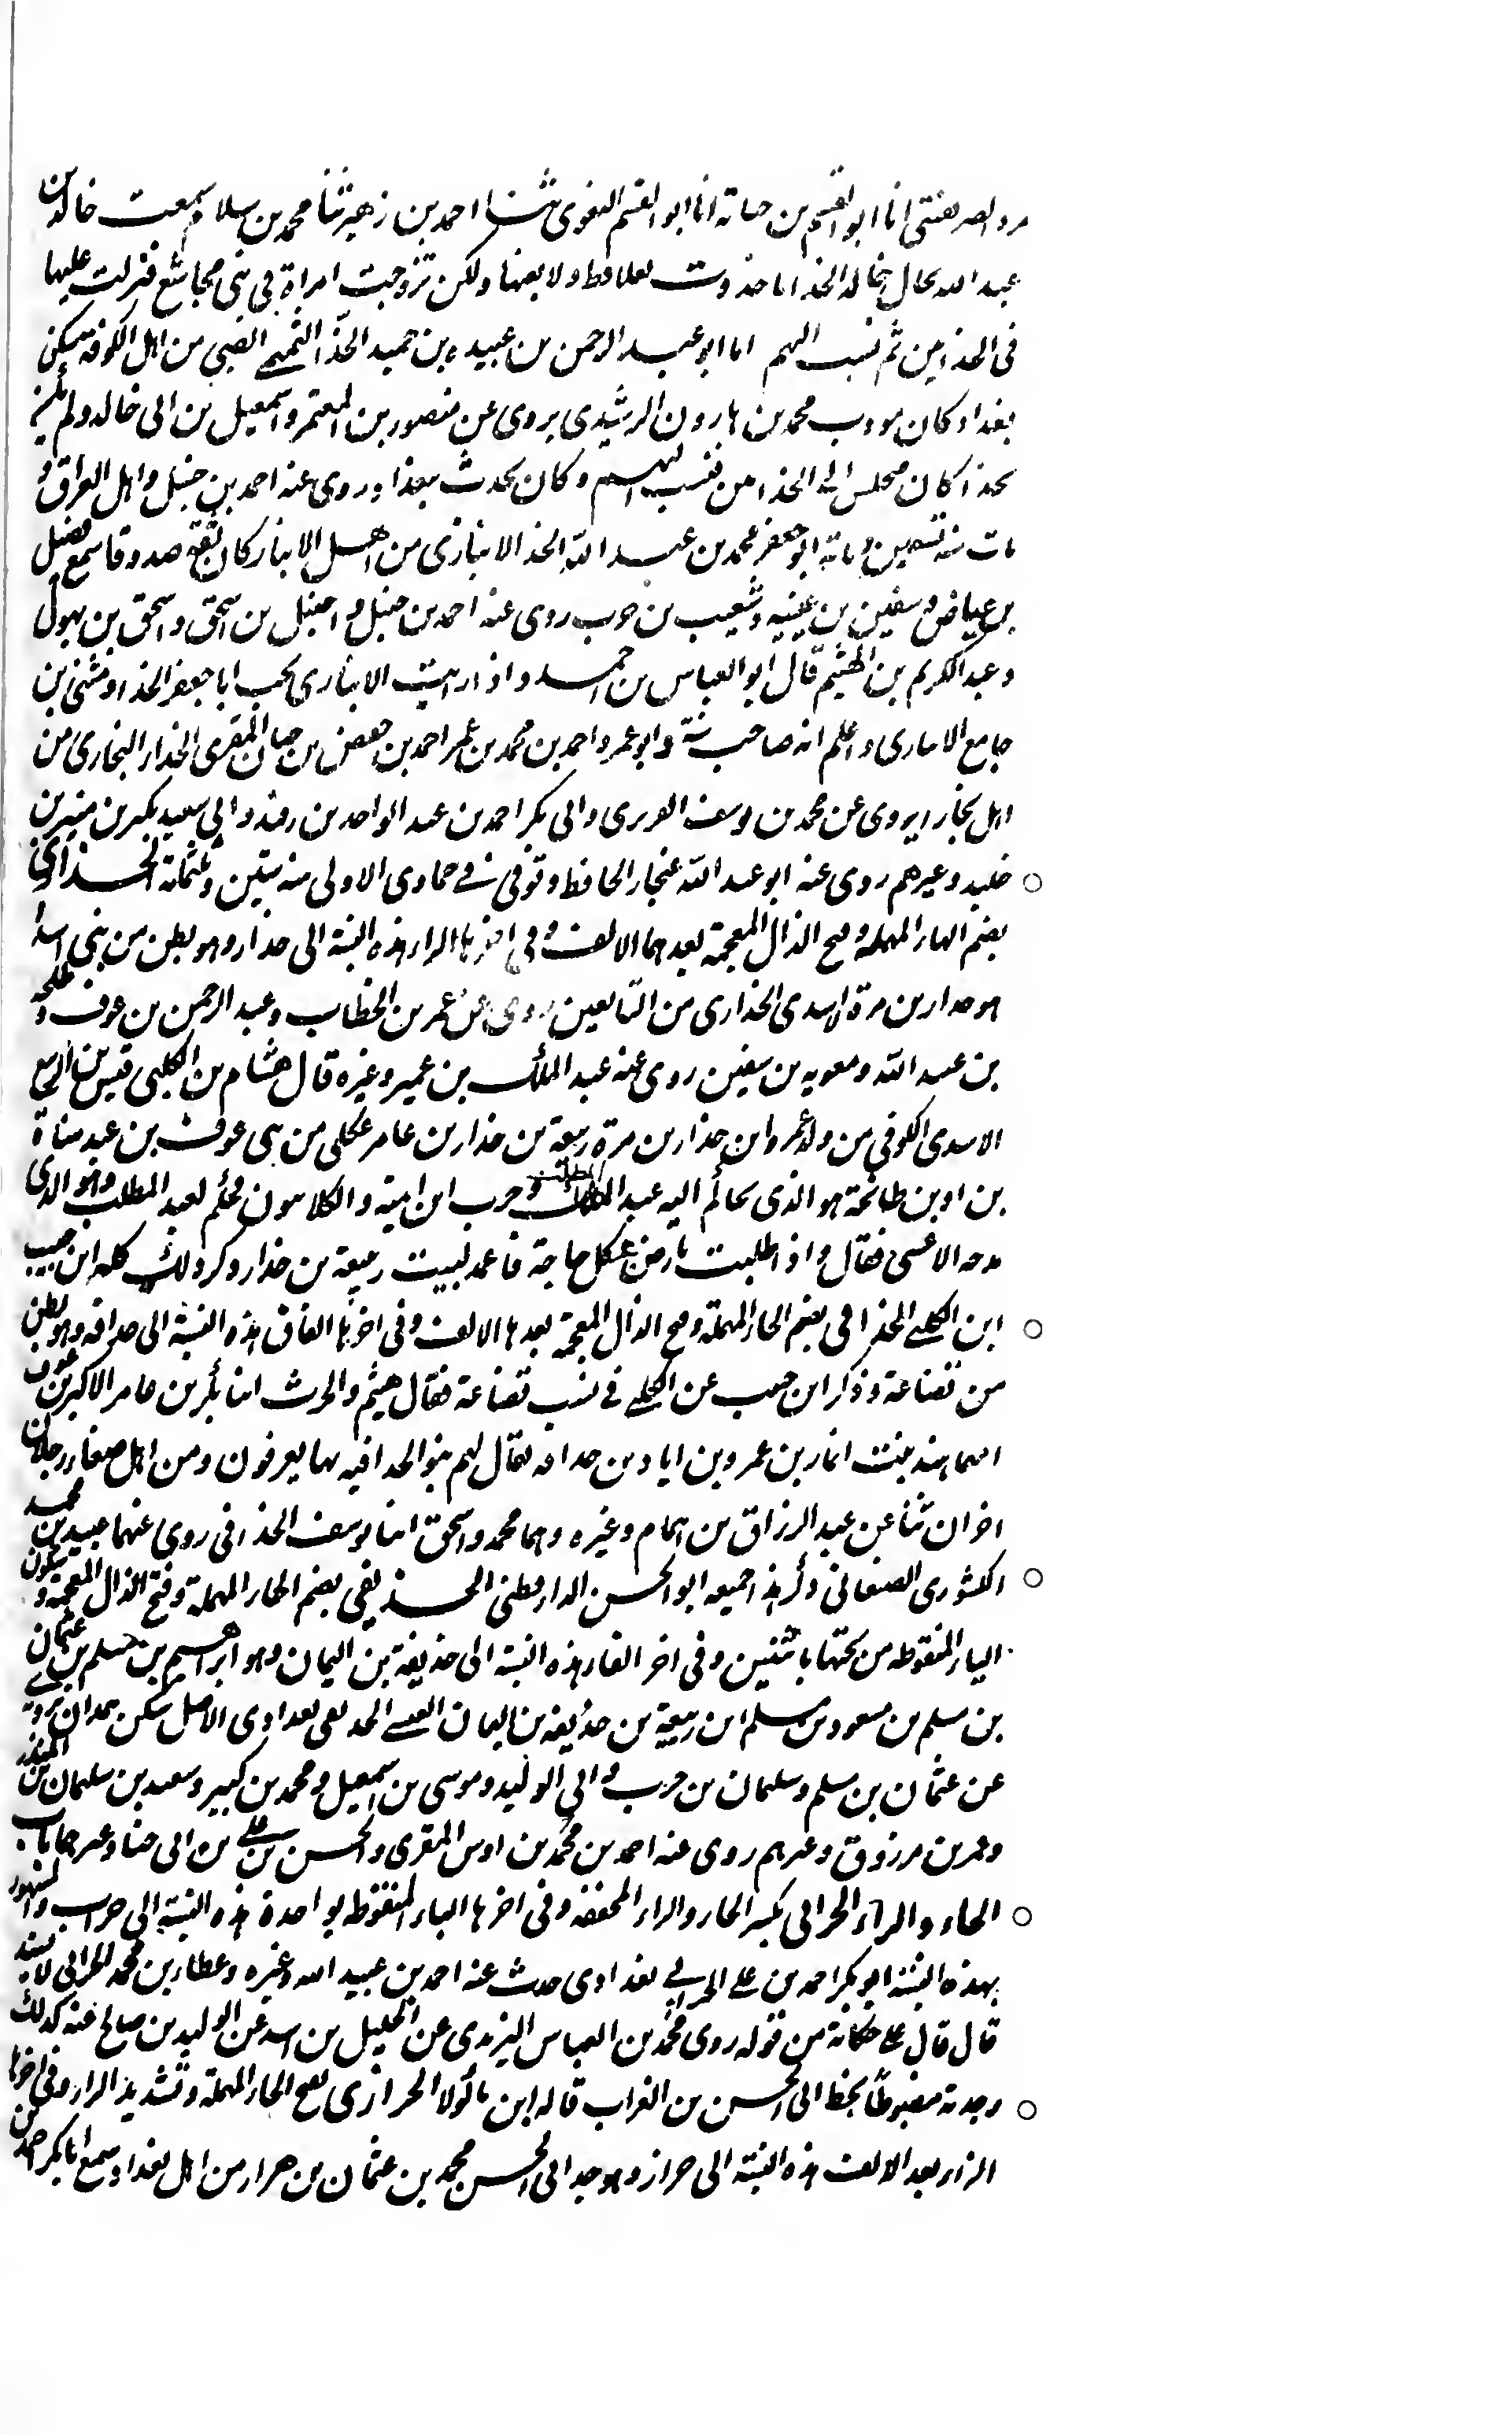 انا ابو القسم بن انا ابو القسم البغوى ثنا احمد بن زهير ثنا محمد بن سلام سمعت خالد بن
عبد الله ولكن تزوجت امراة في بنى مجاشع فنزلت عليها
فى الحذائين ثم نسب اليهم اما ابو عبد الرحمن بن عبيدة بن حميد الحذّا الضبي من اهل الكوفة سكن
بغداد كان مودب محمد بن هارون الرشيدى يروى عن منصور بن المعتمر واسمعيل بن ابى خالد ولم يكن
بحذا كان مجلس الى الحذائين فنسب اليهم وكان يحدث ببغداد وروى عنه احمد بن حنبل واهل العراق و
مات سنة تسعين وماية ابو جعفر محمد بن عبد الله الحذا الانبارى من اهل الانبار كان ثقة صدوقا سمع فضيل
بن عياض وسفين بن عيينه وشعيب بن حرب روى عنه احمد بن حنبل و حنبل بن اسحق واسحق بن بهول
وعبد الكريم بن الهيثم قال ابو العباس بن احمد واذا رايت الانبارى يحب ابا جعفر الحذا ومثنى بن
جامع الانبارى واعلم انه صاحب سنّة وابو عمرو احمد بن محمد بن عمر احمد بن حفص بن حيان المقرى الحذار البخارى من
اهل بخارا يروى عن محمد بن يوسف الفربرى وابى بكر احمد بن عبد الواحد بن رفيد وابى سعيد بكر بن منير بن
خليد وغيرهم روى عنه ابو عبد الله غنجار الحافظ وتوفى فى جمادى الاولى سنه ستين وثلثماة الحذارى
بضم الحاء المهملة وفتح الذال المعجمة بعدهما الالف وفى اخرها الراء هذه النسبة الى حذار وهو بطن من بنى اسد
هو حدار بن مرة الاسدى الحذارى من التابعين روى عن عمر بن الخطاب وعبد الرحمن بن عوف وطلحه
بن عبد الله ومعويه بن سفين روى عنه عبد الملك بن عمير وغيره قال هشام بن الكلبى قيس بن الربيع
الاسدى الكوفى من ولد عمرو ابن حذار بن مرة ربيعة بن حذار بن عامر عكلى من بنى عوف بن عبد مناة
بن اد بن طابخة هو الذى تحاكم اليه عبد المطلب وحرب ابن امية والكلاميون فحكم لعبد المطلب وهو الذى
مدحه الاعشى فقال واذا طلبت بارض عكل حاجة فاعمد لبيت ربيعة بن حذار وكر ذلك كله ابن حبيب
ابن الكلبى الحذاقى بضم الحاء المهملة وفتح الذال المعجمة بعدها الالف وفى اخرها القاف هذه النسبة الى حداقه وهو بطن
من قضاعة وذكر ابن حبيب عن الكلبى فى نسب قضاعة فقال هيثم والحرث ابنا بكر بن عامر الاكبر بن عوف
امهما هند بنت انمار بن عمرو بن اياد بن حداقه يقال لهم بنو الحداقيه بها يعرفون ومن اهل صنعاء رجلان
اخوان ثنا عن عبد الرزاق بن همام وغيره وهما محمد واسحق ابنا يوسف الحذاقى روى عنهما عبيد بن محمد
الكشورى الصنعانى ذكر هذا جميعه ابو الحسن الدارقطنى الحذيفى بضم الحاء المهملة وفتح الذال المعجمة وسكون
الياء المنقوطه من تحتها باثنتين وفى اخر الفاء هذه النسبة الى حذيفة بن اليمان وهو ابراهيم بن مسلم بن عثمان
بن مسلم بن مسعود بن مسلم ابن ربيعة بن حذيفه بن اليمان العبسى الحديفى بغدادى الاصل سكن همدان يروى
عن عثمان بن مسلم وسليمان بن حرب وابى الوليد وموسى بن اسمعيل ومحمد بن كثير وسعيد بن سليمان بن المنذر
وعمر بن مرزوق وغيرهم روى عنه احمد بن محمد بن اوس المقرى والحسن بن على بن ابى حنا وغيرهما باب
الحاء والراء الحرابى بكسر الحاء والراء المخففه وفى اخرها الباء المنقوطه بواحدة هذه النسبة الى حراب والمشهور
بهذه النسبة ابو بكر احمد بن على الحرابى بغدادى حدث عنه احمد بن عبيد الله وغيره وعطار بن محمد الحرابى
قال قال على حكاية من قوله روى محمد بن العباس اليزيدى عن الخليل بن اسد عن الوليد بن صالح عنه كذلك
وجدته مضبوطاً بخط ابى الحسن بن الفرات قاله ابن ماكولا الحرازى بفتح الحاء المهملة وتشديد الراء وفى اخرها
الزاء بعد الالف هذه النسبة الى حراز وهو جد ابى الحسن محمد بن عثمان بن حراز من اهل بغداد سمع ابا بكر احمد بن